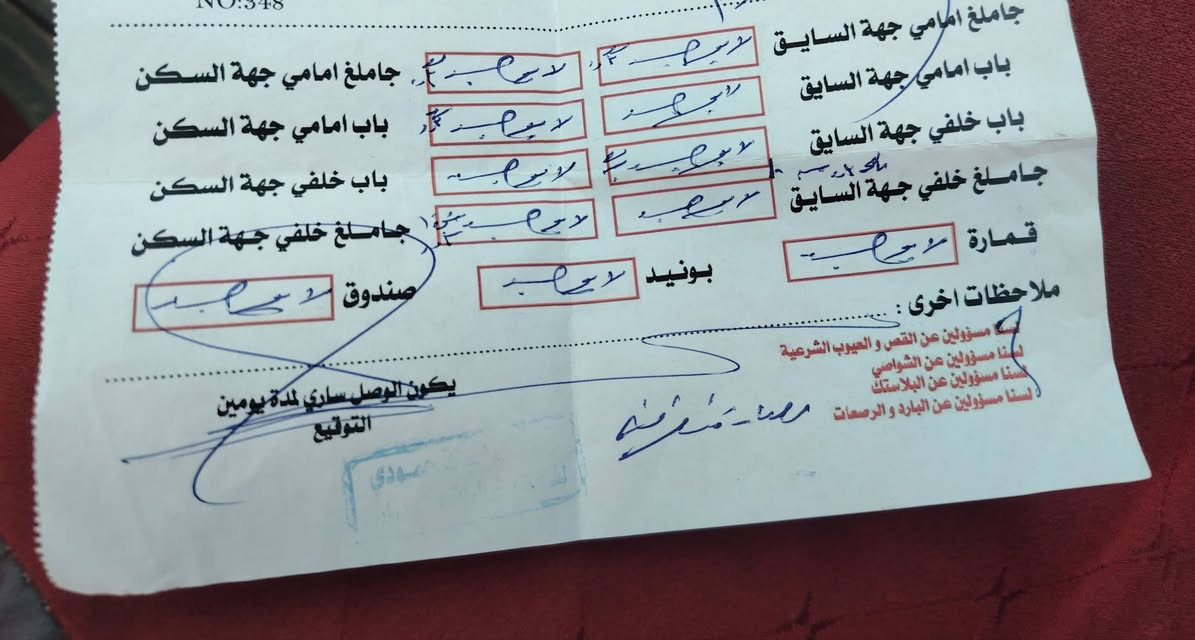 NO:348
جاملغ امامي جهة السايق لا يوجد جاملغ امامي جهة السكن لا يوجد
باب امامي جهة السايق لا يوجد باب امامي جهة السكن لا يوجد
باب خلفي جهة السايق لا يوجد باب خلفي جهة السكن لا يوجد
جاملغ خلفي جهة السايق لا يوجد جاملغ خلفي جهة السكن لا يوجد
قمارة لا يوجد بونيد لا يوجد صندوق لا يوجد
ملاحظات اخرى :
لسنا مسؤولين عن القص و العيوب الشرعية
لسنا مسؤولين عن الشواصي
لسنا مسؤولين عن البلاستك
لسنا مسؤولين عن البارد و الرصعات
يكون الوصل ساري لمدة يومين
التوقيع